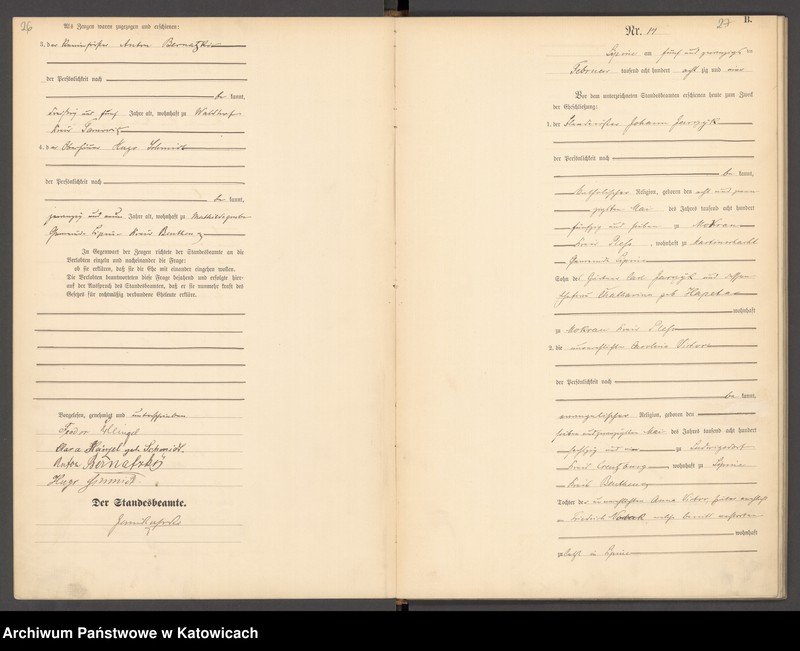 26
Als Zeugen waren zugezogen und erschienen:
3. der Anton Bernatzki
der Persönlichkeit nach
be kannt,
dreißig und fünf Jahre alt, wohnhaft zu
Kreis
4. der Hugo Schmidt
der Persönlichkeit nach
be kannt,
zwanzig und neun Jahre alt, wohnhaft zu
Gemeinde Lipine Kreis Beuthen
In Gegenwart der Zeugen richtete der Standesbeamte an die
Verlobten einzeln und nacheinander die Frage:
ob sie erklären, daß sie die Ehe mit einander eingehen wollen.
Die Verlobten beantworteten diese Frage bejahend und erfolgte hier-
auf der Ausspruch des Standesbeamten, daß er sie nunmehr kraft des
Gesetzes für rechtmäßig verbundene Eheleute erkläre.
Vorgelesen, genehmigt und unterschrieben
Teodor Hänsel
Clara Hänsel geb. Schmidt.
Anton Bernatzki
Hugo Schmidt
Der Standesbeamte.
27
B.
Nr. 14
Lipine am fünf und zwanzigsten
Februar tausend acht hundert acht zig und vier
Vor dem unterzeichneten Standesbeamten erschienen heute zum Zweck
der Eheschließung:
1. der Johann
der Persönlichkeit nach
be kannt,
katholischer Religion, geboren den acht und zwan
zigsten Mai des Jahres tausend acht hundert
fünfzig und sieben zu Mokrau
Kreis Pleß, wohnhaft zu
Gemeinde Lipine
Sohn des Carl und dessen
Ehefrau Katharina geb
wohnhaft
zu Mokrau Kreis Pleß
2. die unverehelichte Carolina Victor
der Persönlichkeit nach
be kannt,
evangelischer Religion, geboren den
sieben und zwanzigsten Mai des Jahres tausend acht hundert
sechszig und zu Ludwigsdorf
Kreis Creutzburg, wohnhaft zu Lipine
Kreis Beuthen
Tochter der unverehelichten Anna Victor später verehelicht
Friedrich welche bereits verstorben
wohnhaft
zuletzt in Lipine
Archiwum Państwowe w Katowicach